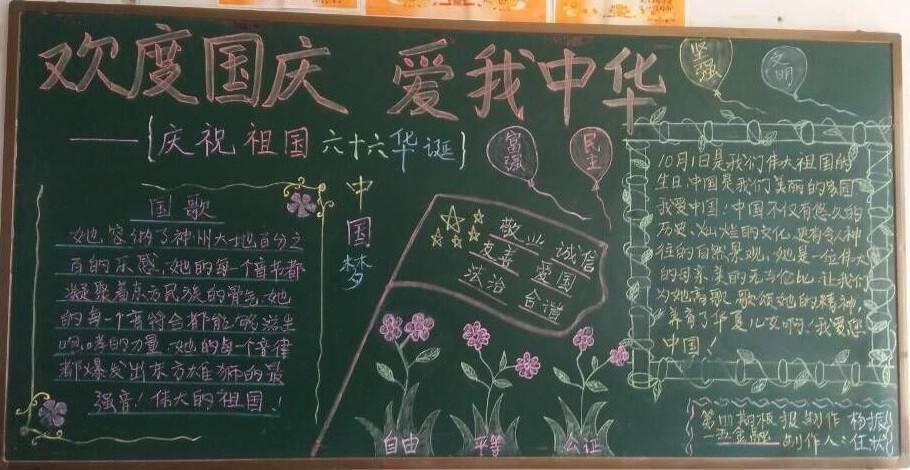 欢度国庆 爱我中华
——{庆祝祖国六十六华诞}
坚强
文明
富强
民主
国歌
她,容纳了神州大地百分之
百的乐感,她的每一个音节都
凝聚着东方民族的骨气,她
的每一个音符合都能够滋生
呐喊的力量,她的每一个音律
都爆发出东方雄狮的最
强音!伟大的祖国!
中国梦
敬业 诚信
友善 爱国
法治 合谐
自由
平等
公证
10月1日是我们伟大祖国的
生日,中国是我们美丽的家园
我爱中国!中国不仅有悠久的
历史,灿烂的文化,还有令人神
往的自然景观,她是一位伟大
的母亲,美的无与伦比,让我们
为她高歌,歌颂她的精神,
养育了华夏儿女啊!我爱您
中国!
期板报制作 杨振
制作人:任